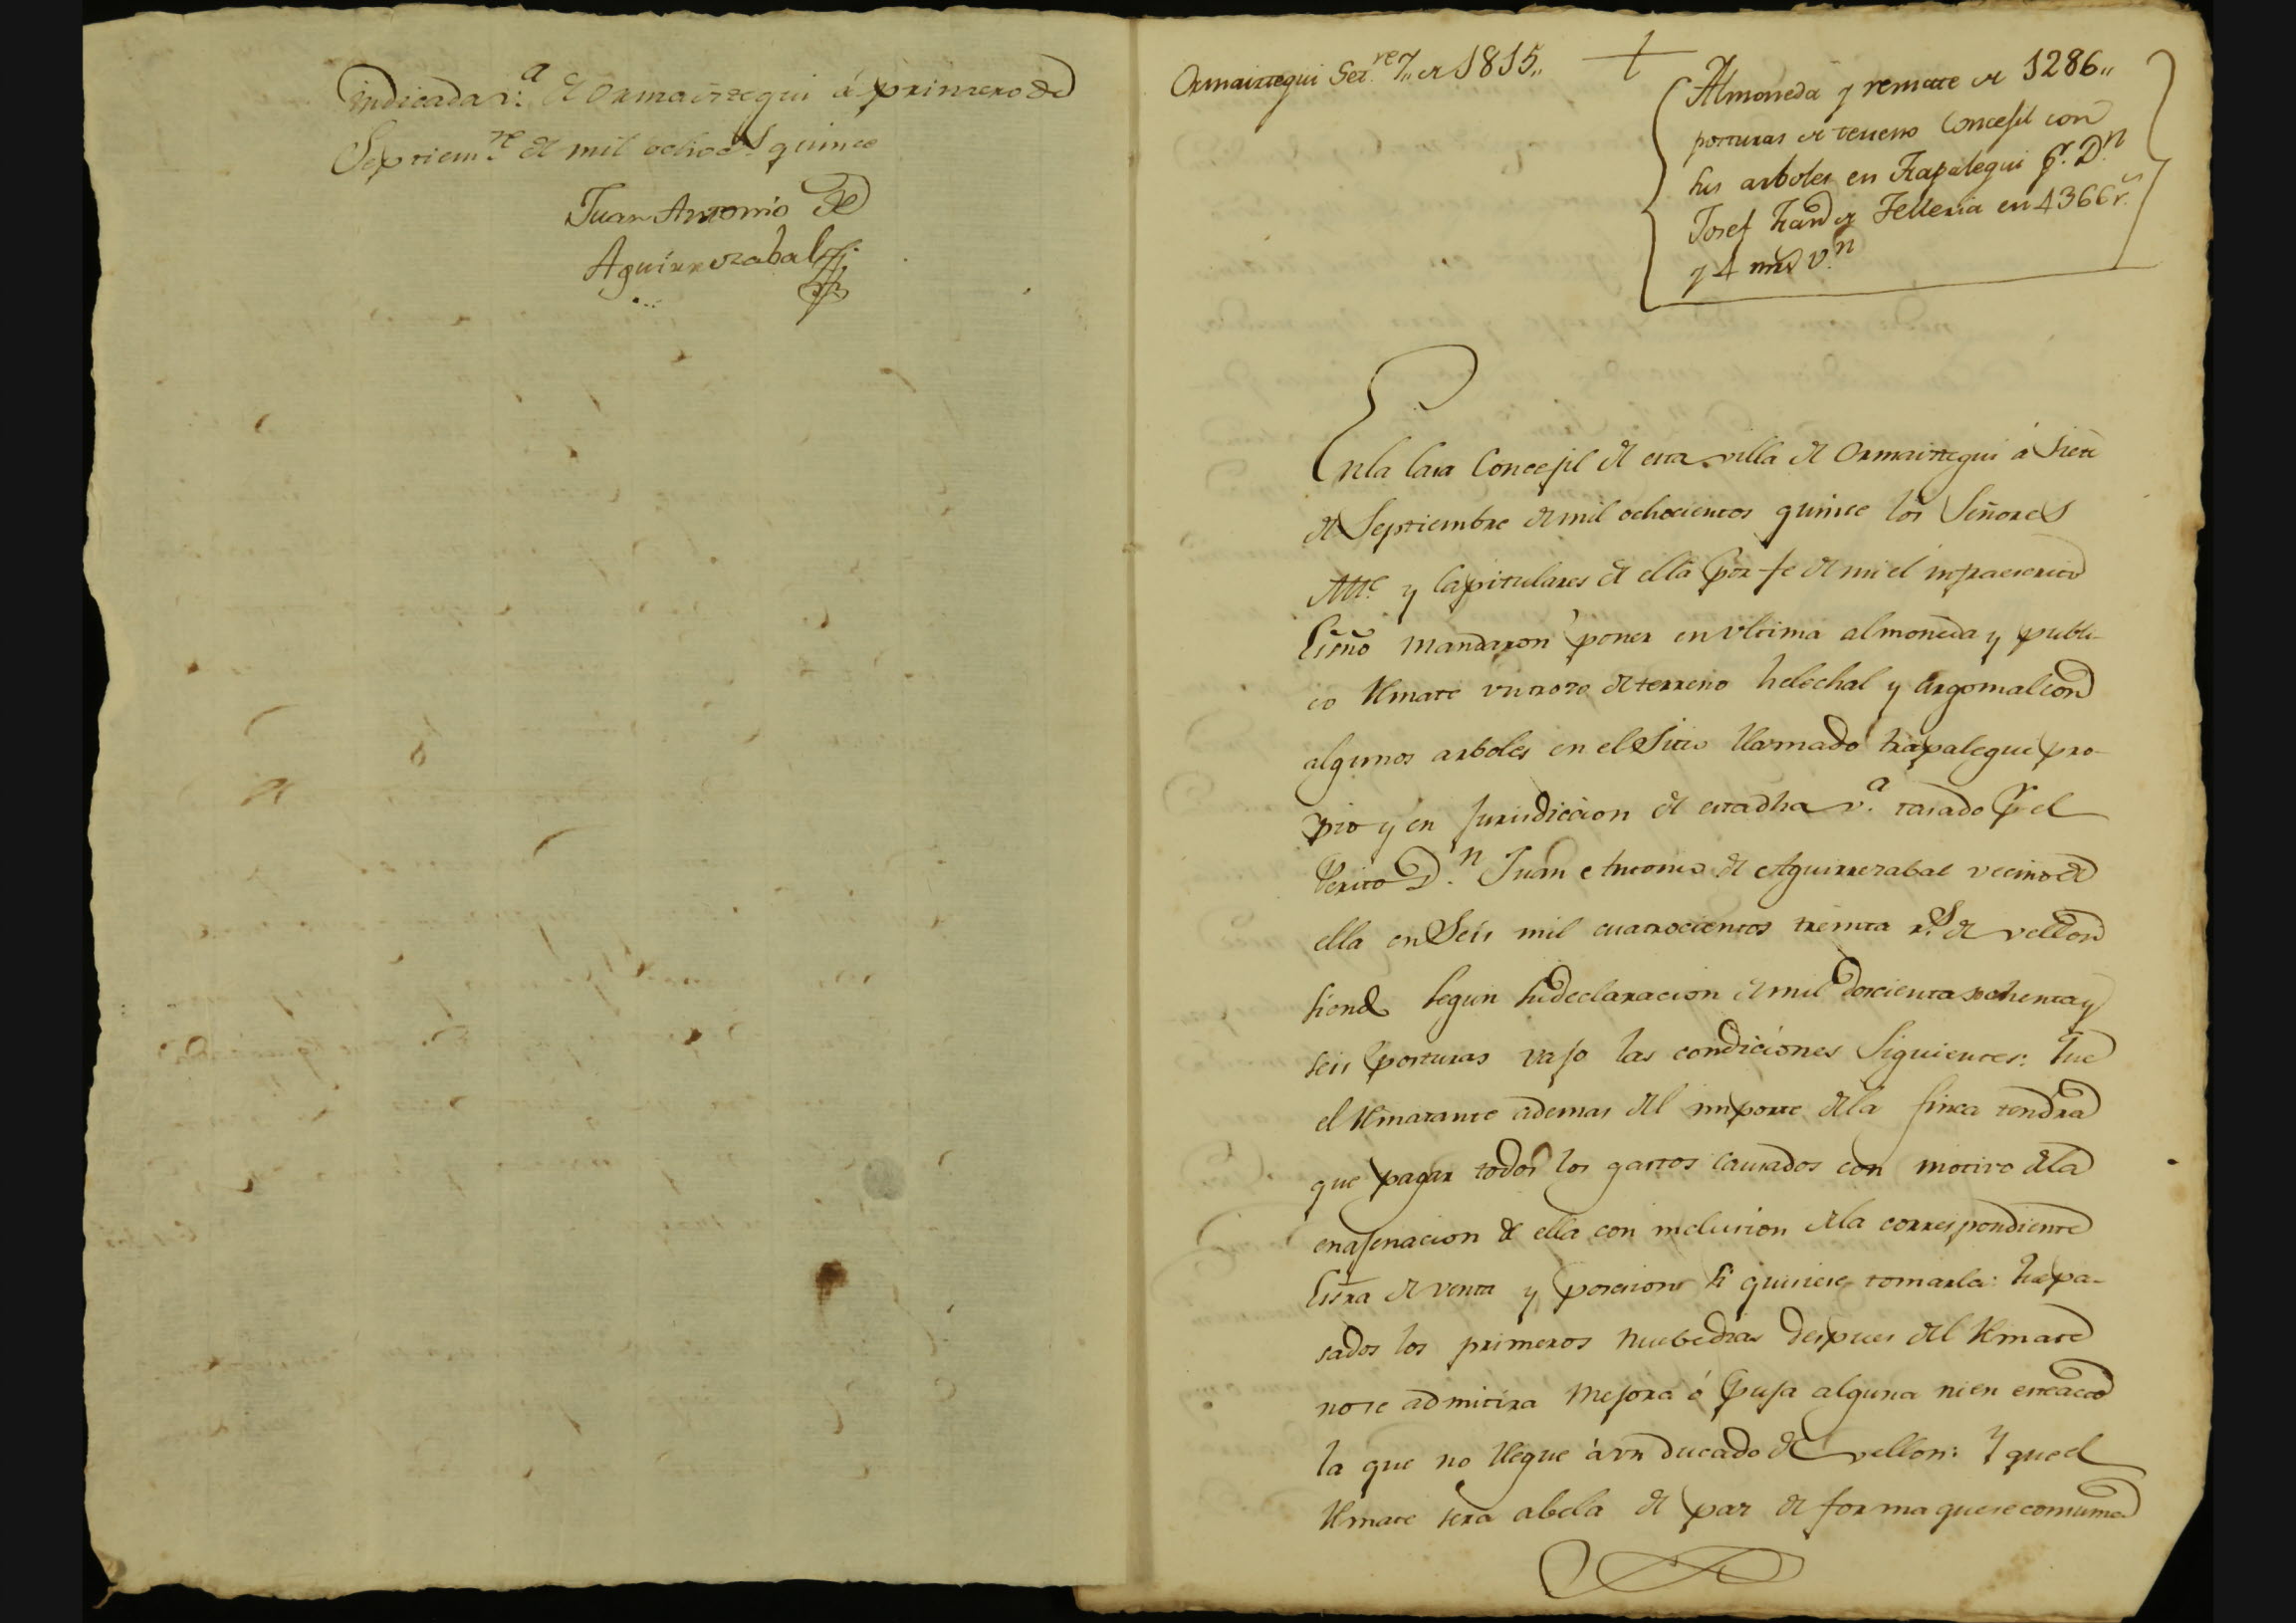 indicada v.ª de Ormaiztegui á primero de
Septiem.re de mil ochoc.s quince
Juan Antonio de
Aguirrezabal
Ormaiztegui Set.re 7,, de 1815,,
Almoneda y remate de 1286,,
posturas de terreno Concejil con
sus arboles en Trapalegui Pr. D.n
Josef Fran.co de Telleria en 4366 r.s
y 4 mrs v.n
En la Casa Concejil de esta villa de Ormaiztegui á siete
de Septiembre de mil ochocientos quince los Señores
Alc.e y Capitulares de ella por fe de mi el infraescrito
Essño mandaron poner en ultima almoneda y publi-
co Remate un trozo de terreno helechal y Argomal con
algunos arboles en el Sitio llamado trapalegui pro-
pio y en Jurisdiccion de esta dha v.ª tasado Pr el
Perito D.n Juan Antonio de Aguirrezabal vecino de
ella en Seis mil cuatrocientos treinta r.s de vellon
siendo segun su declaracion de mil doscientas ochenta y
seis posturas vajo las condiciones Siguientes: Que
el Rematante ademas del importe de la finca tendra
que pagar todos los gastos causados con motivo de la
enajenacion de ella con inclusion de la correspondiente
Essra de venta y posesion si quisiere tomarla: Que pa-
sados los primeros nuebe dias despues del Remate
no se admitira Mejora ó puja alguna ni en este acto
la que no llegue á un ducado de vellon: Y que el
Remate sera abela de par de forma que se consuma